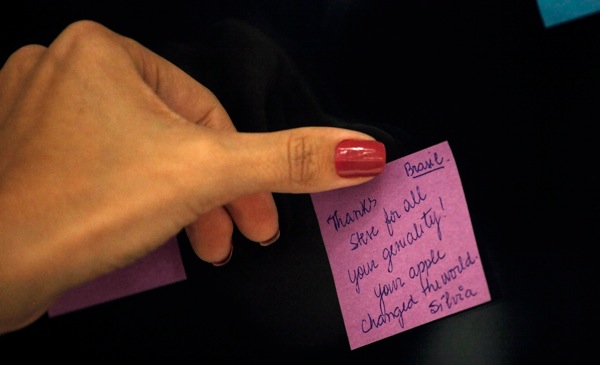 Brasil.
Thanks
Steve for all
your geniality!
your apple
changed the world.
Silvia